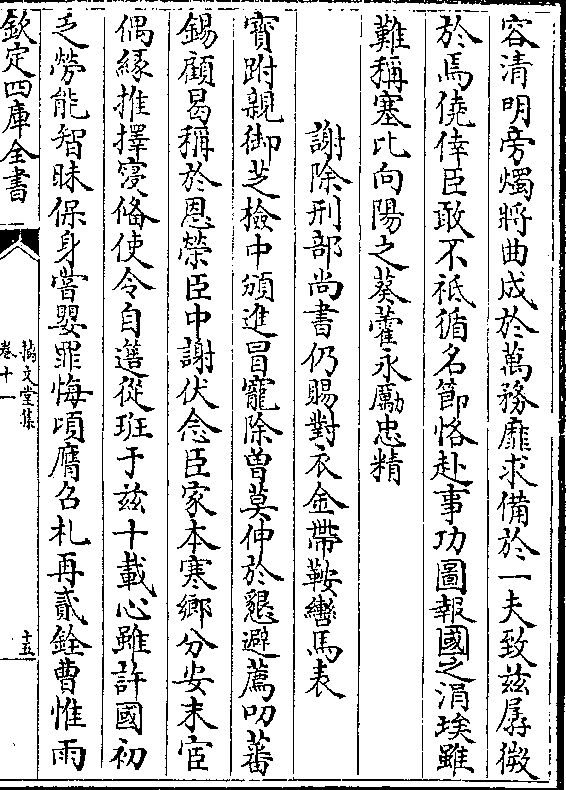 容清明旁燭將曲成於萬務靡求備於一夫致兹孱微
於焉僥倖臣敢不祗循名節恪赴事功圖報國之涓埃雖
難稱塞比向陽之葵藿永勵忠精
謝除刑部尚書仍賜對衣金帶鞍轡馬表
寶跗親御芝檢中頒進冒寵除曽莫伸於懇避薦叨蕃
錫顧曷稱於恩榮臣中謝伏念臣家本寒鄉分安末宦
偶縁推擇寖偹使令自簉從班于兹十載心雖許國初
乏勞能智昧保身嘗嬰罪悔頃膺召札再貳銓曹惟雨
欽定四庫全書
摛文堂集
卷十一
十五